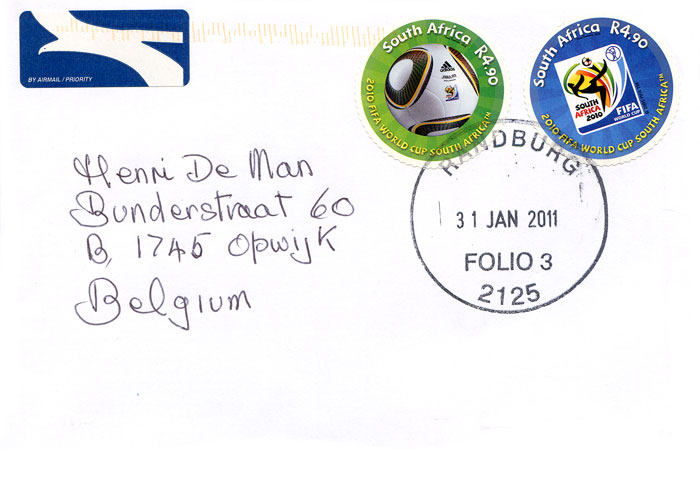 BY AIRMAIL / PRIORITY
South Africa R4.90
adidas
2010 FIFA WORLD CUP SOUTH AFRICA™
South Africa R4.90
SOUTH AFRICA 2010
FIFA
WORLD CUP
2010 FIFA WORLD CUP SOUTH AFRICA™
RANDBURG
31 JAN 2011
FOLIO 3
2125
Henri De Man
Bunderstraat 60
B, 1745 Opwijk
Belgium